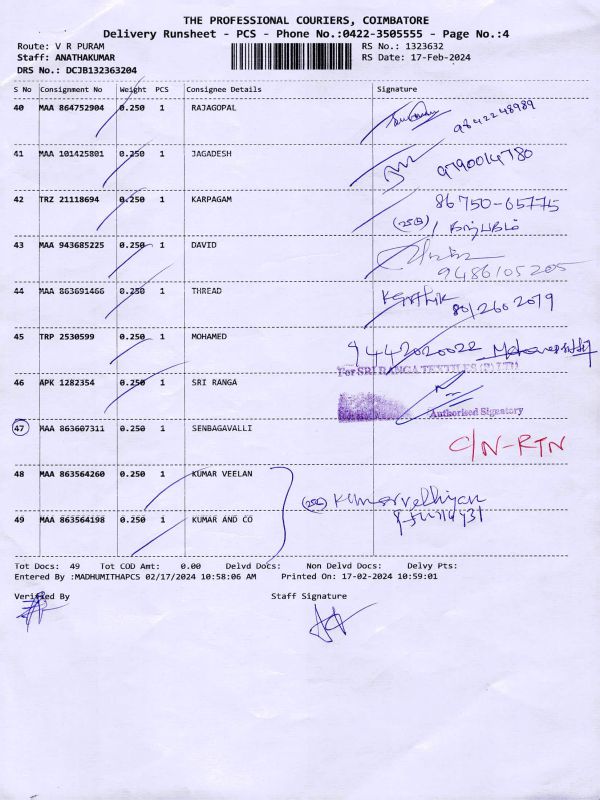 THE PROFESSIONAL COURIERS, COIMBATORE
Delivery Runsheet - PCS - Phone No.:0422-3505555 - Page No.:4
Route: V R PURAM
RS No.: 1323632
Staff: ANATHAKUMAR
RS Date: 17-Feb-2024
DRS No.: DCJB132363204
S No Consignment No Weight PCS Consignee Details Signature
40 MAA 864752904 0.250 1 RAJAGOPAL 9842248989
41 MAA 101425801 0.250 1 JAGADESH 9790014780
42 TRZ 21118694 0.250 1 KARPAGAM 86750-65775
43 MAA 943685225 0.250 1 DAVID 9486105205
44 MAA 863691466 0.250 1 THREAD Karthik 8012602079
45 TRP 2530599 0.250 1 MOHAMED 9442020022
46 APK 1282354 0.250 1 SRI RANGA For SRI RANGA TEXTILES (P) LTD
Authorised Signatory
47 MAA 863607311 0.250 1 SENBAGAVALLI C/N-RTN
48 MAA 863564260 0.250 1 KUMAR VEELAN
49 MAA 863564198 0.250 1 KUMAR AND CO
Tot Docs: 49 Tot COD Amt: 0.00 Delvd Docs: Non Delvd Docs: Delvy Pts:
Entered By :MADHUMITHAPCS 02/17/2024 10:58:06 AM Printed On: 17-02-2024 10:59:01
Verified By Staff Signature